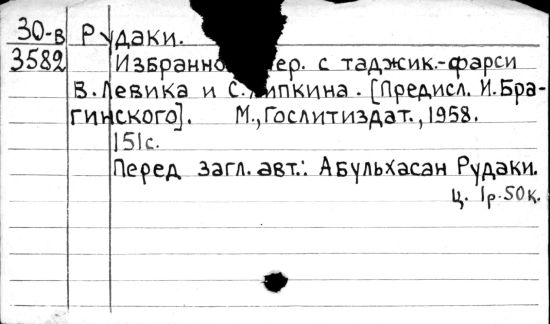 30-в Рудаки.
3582 Избранно ер. с таджик.-фарси
В. Левика и С. Липкина. [Предисл. И. Бра-
гинского]. М., Гослитиздат., 1958.
151с.
Перед загл. авт.: Абульхасан Рудаки.
ц. 1р.50к.